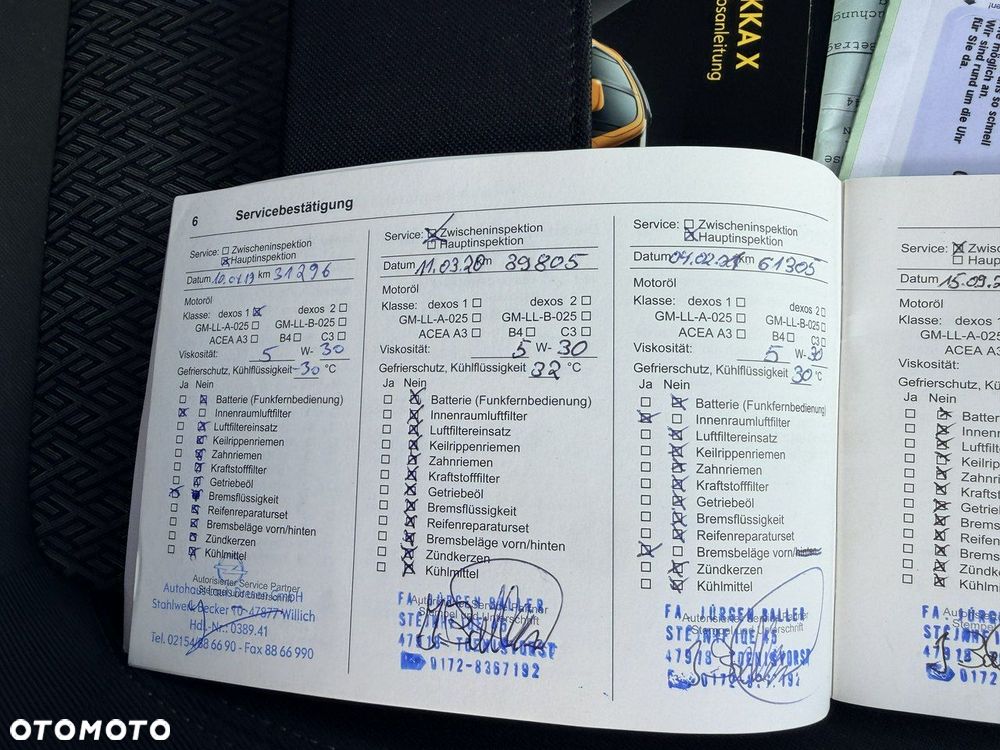 KKA X
osanleitung
chung
Betrag
so schnell
möglich an.
Wir sind rund um die Uhr
für Sie da.
6 Servicebestätigung
Service: ☐ Zwischeninspektion
☒ Hauptinspektion
Datum 10.01.19 km 31296
Motoröl
Klasse: dexos 1 ☒ dexos 2 ☐
GM-LL-A-025 ☐ GM-LL-B-025 ☐
ACEA A3 ☐ B4 ☐ C3 ☐
Viskosität: 5 W- 30
Gefrierschutz, Kühlflüssigkeit -30 °C
Ja Nein
☐ ☒ Batterie (Funkfernbedienung)
☒ ☐ Innenraumluftfilter
☐ ☒ Luftfiltereinsatz
☐ ☒ Keilrippenriemen
☐ ☒ Zahnriemen
☐ ☒ Kraftstofffilter
☐ ☒ Getriebeöl
☒ ☒ Bremsflüssigkeit
☐ ☒ Reifenreparaturset
☐ ☒ Bremsbeläge vorn/hinten
☐ ☒ Zündkerzen
☐ ☒ Kühlmittel
Autorisierter Service Partner
Stempel und Unterschrift
Autohaus GmbH
Stahlwerk Becker 10 · 47877 Willich
Hdl.-Nr.: 0389.41
Tel. 02154/88 66 90 - Fax 88 66 990
Service: ☒ Zwischeninspektion
☐ Hauptinspektion
Datum 11.03.20 km 39805
Motoröl
Klasse: dexos 1 ☐ dexos 2 ☐
GM-LL-A-025 ☐ GM-LL-B-025 ☐
ACEA A3 ☐ B4 ☐ C3 ☐
Viskosität: 5 W- 30
Gefrierschutz, Kühlflüssigkeit 32 °C
Ja Nein
☐ ☒ Batterie (Funkfernbedienung)
☐ ☒ Innenraumluftfilter
☐ ☒ Luftfiltereinsatz
☐ ☒ Keilrippenriemen
☐ ☒ Zahnriemen
☐ ☒ Kraftstofffilter
☐ ☒ Getriebeöl
☐ ☒ Bremsflüssigkeit
☐ ☒ Reifenreparaturset
☐ ☒ Bremsbeläge vorn/hinten
☐ ☒ Zündkerzen
☐ ☒ Kühlmittel
Autorisierter Service Partner
Stempel und Unterschrift
FA. JÜRGEN BALLER
47918 TOENISVORST
0172-8367192
Service: ☐ Zwischeninspektion
☒ Hauptinspektion
Datum 04.02.21 km 61305
Motoröl
Klasse: dexos 1 ☐ dexos 2 ☐
GM-LL-A-025 ☐ GM-LL-B-025 ☐
ACEA A3 ☐ B4 ☐ C3 ☐
Viskosität: 5 W- 30
Gefrierschutz, Kühlflüssigkeit 30 °C
Ja Nein
☐ ☒ Batterie (Funkfernbedienung)
☒ ☐ Innenraumluftfilter
☐ ☒ Luftfiltereinsatz
☐ ☒ Keilrippenriemen
☐ ☒ Zahnriemen
☐ ☒ Kraftstofffilter
☐ ☒ Getriebeöl
☐ ☒ Bremsflüssigkeit
☐ ☒ Reifenreparaturset
☒ ☐ Bremsbeläge vorn/hinten
☐ ☒ Zündkerzen
☐ ☒ Kühlmittel
Autorisierter Service Partner
Stempel und Unterschrift
FA. JÜRGEN BALLER
47918 TOENISVORST
0172-
Service: ☒ Zwis
☐ Haup
Datum 15.09.2
Motoröl
Klasse: dexos
GM-LL-A-02
ACEA A3
Viskosität:
Gefrierschutz, K
Ja Nein
☐ ☒ Batter
☐ ☒ Innen
☐ ☒ Luftfil
☐ ☒ Keilrip
☐ ☒ Zahnri
☐ ☒ Krafts
☐ ☒ Getrieb
☐ ☒ Brems
☐ ☒ Reifen
☐ ☒ Brems
☐ ☒ Zündk
☐ ☒ Kühlm
Autoris
Stem
FA. JÜRG
47918
0172
OTOMOTO